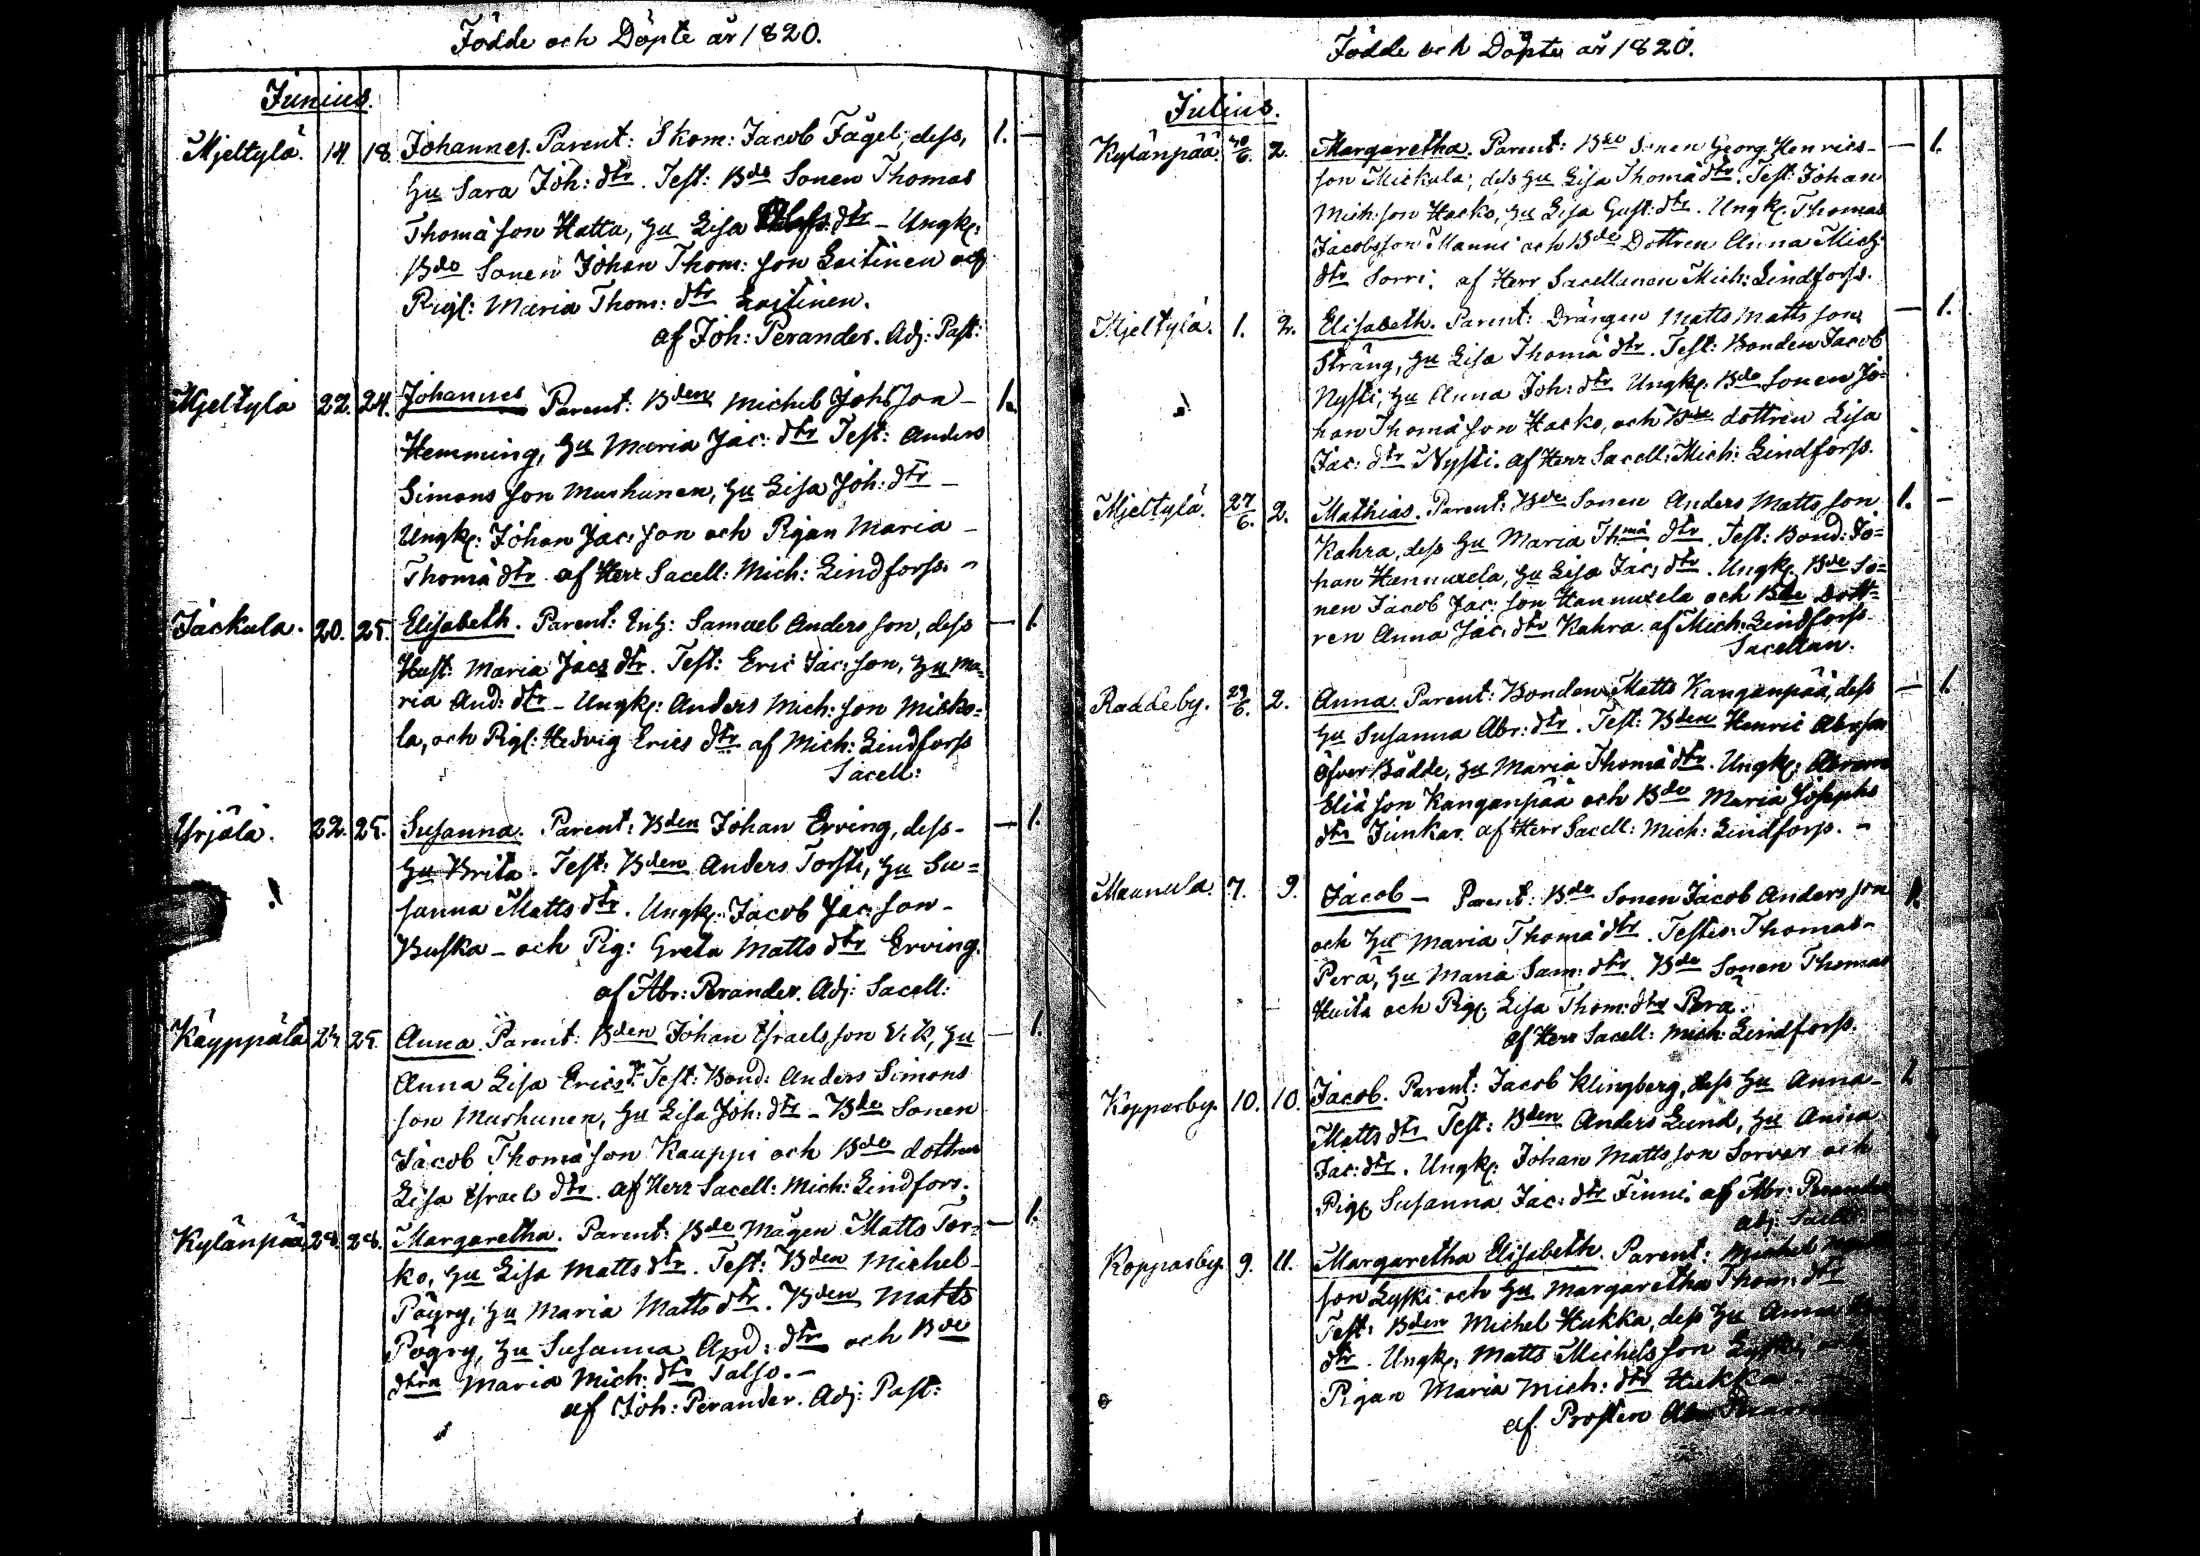 Födde och Döpte år 1820.
Junius.
Mjeltylä. 14. 18. Johannes. Parent: Skom: Jacob Fågel, dess, 1. —
Hu Sara Joh: dtr. Test: Bde Sonen Thomas
Thomæ son Hatta, Hu Lisa dtr – Ungk:
Bde Sonen Johan Thom: son Loitinen och
Pig: Maria Thom: dtr Loitinen.
af Joh: Perander. Adj: Past:
Mjeltylä 22. 24. Johannes Parent: Bden Michel Johsson – 1.
Hemming, Hu Maria Jac: dtr Test: Anders
Simons son Murhunen, Hu Lisa Joh: dtr –
Ungk: Johan Jac: son och Pigan Maria –
Thomæ dtr af Herr Sacell: Mich: Lindforss. –
Jäckula. 20. 25. Elisabeth. Parent: Samuel Anders son, dess — 1
Hust: Maria Jacs dtr. Test: Eric Jac: son, Hu Ma=
ria And: dtr – Ungk: Anders Mich: son Micko=
la, och Pig: Hedvig Erics dtr af Mich: Lindforss
Sacell:
Yrjälä. 22. 25. Susanna. Parent: Bden Johan Erving, dess – — 1.
Hu Brita. Test: Bden Anders Torsti, Hu Su=
sanna Matts dtr. Ungk: Jacob Jac: son –
Buska – och Pig: Greta Matts dtr Erving.
af Abr: Perander. Adj: Sacell:
Käyppälä 24 25. Anna. Parent: Bden Johan Israels son Hu — 1.
Anna Lisa Erics dr Test: Bond: Anders Simons
son Murhunen, Hu Lisa Joh: dtr – Bde Sonen
Jacob Thomæ son Kauppi och Bde dottren
Lisa Israels dtr. af Herr Sacell: Mich: Lindfors.
Kylänpää 28. 28. Margaretha. Parent: Bde Mågen Matts Tor= — 1.
ko, Hu Lisa Matts dtr. Test: Bden Michel
Pögry, Hu Maria Matts dtr. Bden Matts
Pögry, Hu Susanna And: dtr och Bde
dtrn Maria Mich: dtr Talso. –
af Joh: Perander. Adj: Past:
Födde och Döpte år 1820.
Julius.
Kylänpää 30/6. 2. Margaretha. Parent: Bde Sonen Georg Henrics- — 1.
son Mickula, dess Hu Lisa Thomæ dtr. Test: Johan
Mich: son Hacko, Hu Lisa Gust: dtr. Ungk: Thomas
Jacobsson Manni och Bde Dottren Anna Mich:
dtr Sorri. af Herr Sacellanen Mich: Lindforss.
Mjeltylä. 1. 2. Elisabeth. Parent: Drängen Matts Matts son — 1.
Sträng, Hu Lisa Thomæ dtr. Test: Bonden Jacob
Nysti, Hu Anna Joh: dtr Ungk: Bde Sonen Jo=
han Thomæ son Hacko, och Bde dottren Lisa
Jac: dtr Nysti. af Herr Sacell: Mich: Lindforss.
Mjeltylä. 27/6. 2. Mathias. Parent: Bde Sonen Anders Matts son 1. –
Kahra, dess Hu Maria Thmæ dtr. Test: Bond: Jo=
han Hannuxela, Hu Lisa Jac: dtr. Ungk: Bde So=
nen Jacob Jac: son Hannuxela och Bde Dott=
ren Anna Jac: dtr Kahra. af Mich: Lindforss
Sacellan.
Raddeby. 29/6. 2. Anna. Parent: Bonden Matts Kanganpää, dess — 1.
Hu Susanna Abr: dtr. Test: Bden Henric Abr: son
Öfver Bädde, Hu Maria Thomæ dtr. Ungk: Abram
Eliæ son Kanganpää och Bde Maria Josephs
dtr Junkar. af Herr Sacell: Mich: Lindforss. –
Mannula. 7. 9. Jacob – Parent: Bde Sonen Jacob Anders son 1.
och Hu Maria Thomæ dtr. Testis: Thomas –
Perä, Hu Maria Sam: dtr. Bde Sonen Thomas
Huita och Pig: Lisa Thom: dtr Perä.
af Herr Sacell: Mich: Lindforss.
Kopparby. 10. 10. Jacob. Parent: Jacob Klingberg, dess Hu Anna – 1
Matts dtr Test: Bden Anders Lund, Hu Anna
Jac: dtr. Ungk: Johan Matts son Sorvar och
Pig: Susanna Jac: dtr Finni. af Abr: Perander
adj: Sacell:
Kopparby. 9. 11. Margaretha Elisabeth. Parent: Michel
son Lyski och Hu Margaretha Thom: dtr
Test: Bden Michel Hukka, dess Hu Anna
dtr. Ungk: Matts Michels son Lyski, och
Pigan Maria Mich: dtr Hukka
af. Prosten